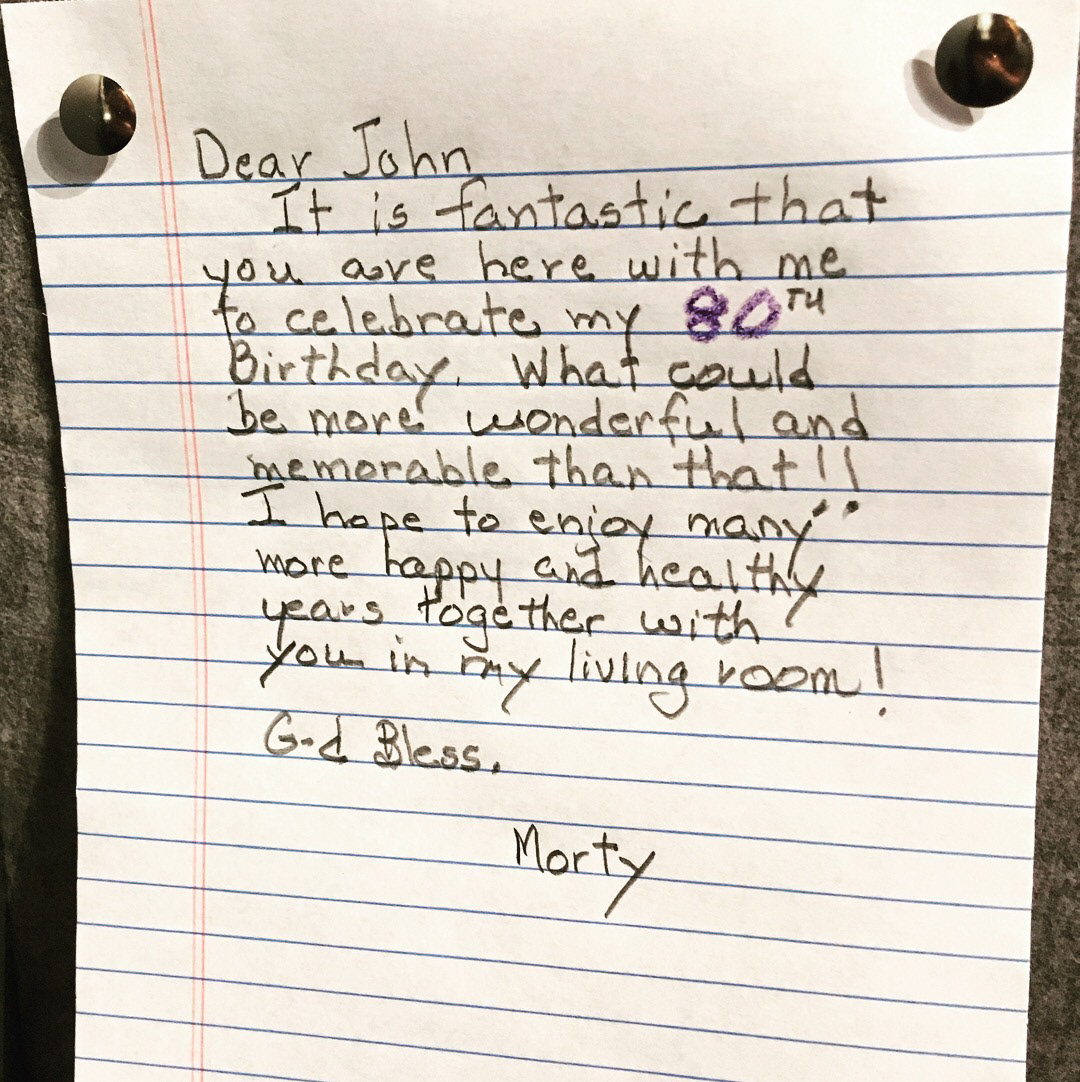 Dear John
It is fantastic that
you are here with me
to celebrate my 80TH
Birthday. What could
be more wonderful and
memorable than that!!
I hope to enjoy many
more happy and healthy
years together with
you in my living room!
G-d Bless.
Morty